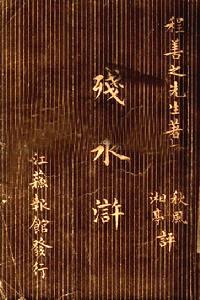 程善之先生著
殘水滸
秋風
湘亭
評
江蘇報館發行